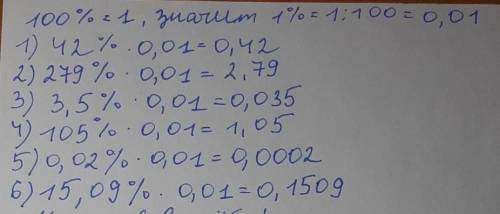 100% = 1, значит 1% = 1:100 = 0,01
1) 42% · 0,01 = 0,42
2) 279% · 0,01 = 2,79
3) 3,5% · 0,01 = 0,035
4) 105% · 0,01 = 1,05
5) 0,02% · 0,01 = 0,0002
6) 15,09% · 0,01 = 0,1509